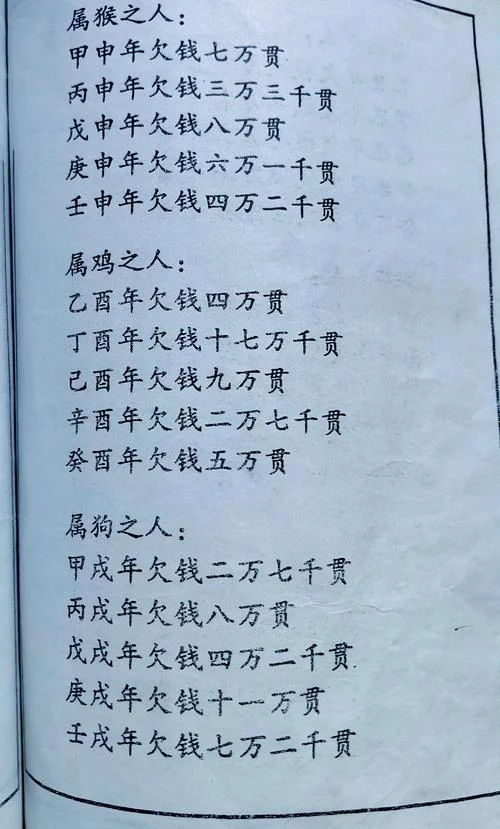 属猴之人：
甲申年欠钱七万贯
丙申年欠钱三万三千贯
戊申年欠钱八万贯
庚申年欠钱六万一千贯
壬申年欠钱四万二千贯
属鸡之人：
乙酉年欠钱四万贯
丁酉年欠钱十七万千贯
己酉年欠钱九万贯
辛酉年欠钱二万七千贯
癸酉年欠钱五万贯
属狗之人：
甲戌年欠钱二万七千贯
丙戌年欠钱八万贯
戊戌年欠钱四万二千贯
庚戌年欠钱十一万贯
壬戌年欠钱七万二千贯